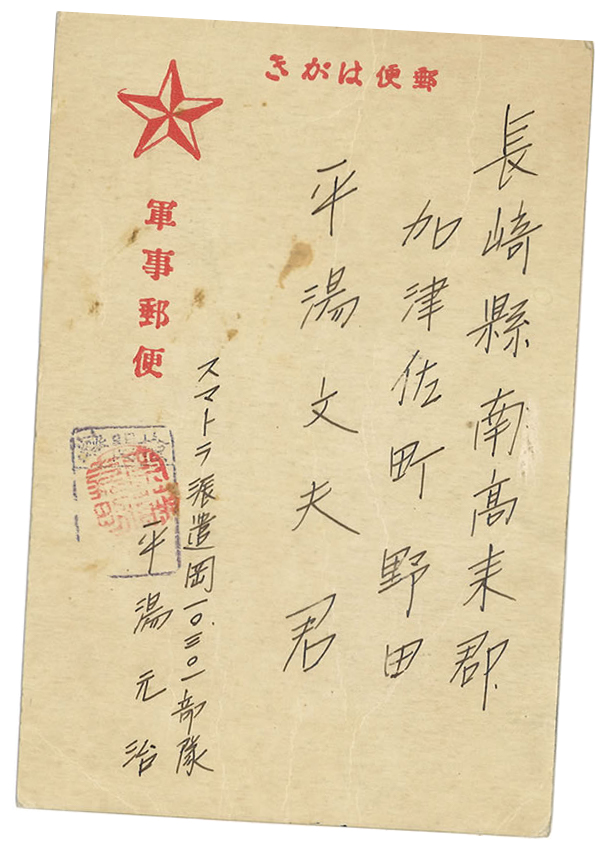 きがは便郵
長崎縣南高来郡
加津佐町野田
平湯文夫君
軍事郵便
スマトラ派遣岡一〇、三〇一部隊
平湯元治